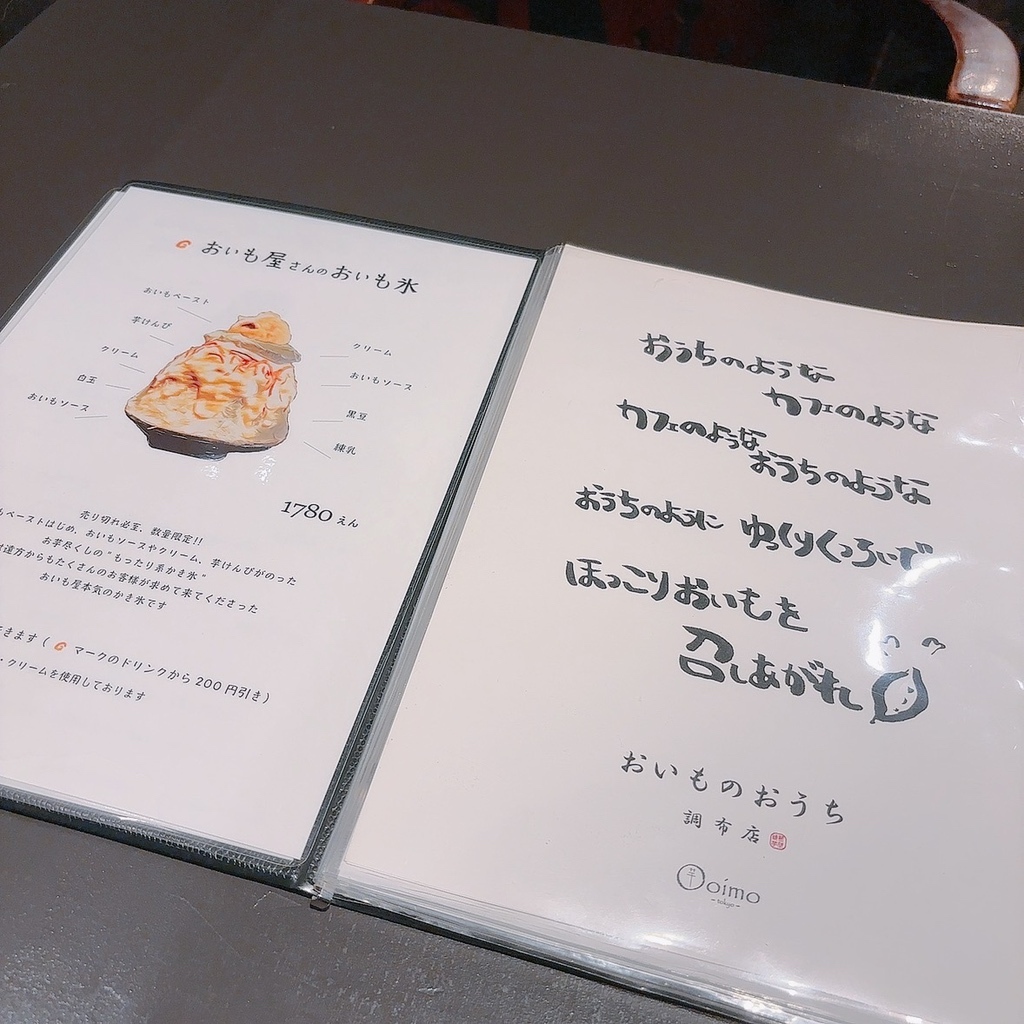 おいも屋さんのおいも氷
おいもペースト
芋けんぴ
クリーム
白玉
おいもソース
クリーム
おいもソース
黒豆
練乳
1780えん
売り切れ必至、数量限定!!
ペーストはじめ、おいもソースやクリーム、芋けんぴがのった
お芋尽くしの"もったり系かき氷"
遠方からもたくさんのお客様が求めて来てくださった
おいも屋本気のかき氷です
きます( マークのドリンクから200円引き)
・クリームを使用しております
おうちのような
カフェのような
カフェのような
おうちのような
おうちのように ゆっくりくつろいで
ほっこりおいもを
召しあがれ
おいものおうち
調布店
芋 oimo
-tokyo-